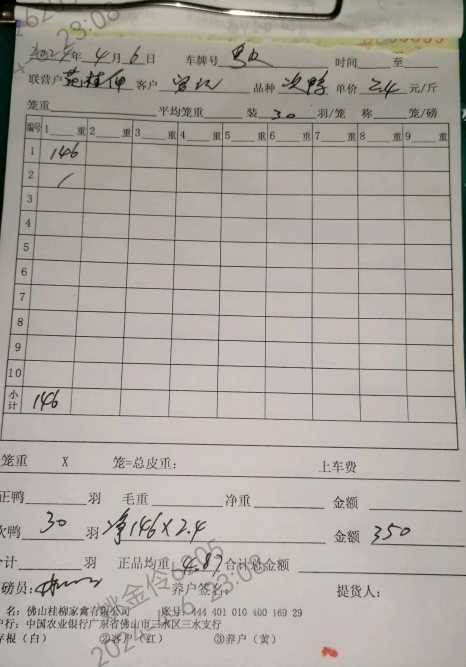 2024年4月6日 车牌号 时间 至
联营户 客户 品种 次鸭 单价 2.4 元/斤
笼重 平均笼重 装 30 羽/笼 称 笼/磅
编号 1 重 2 重 3 重 4 重 5 重 6 重 7 重 8 重 9 重
1 146
2 /
3
4
5
6
7
8
9
10
小计 146
笼重 X 笼=总皮重: 上车费
正鸭 羽 毛重 净重 金额
次鸭 30 羽 净146X2.4 金额 350
计 羽 正品均重 4.87 合计总金额
磅员: 养户签名: 提货人:
名: 佛山桂柳家禽有限公司 账号: 444 401 010 400 169 29
户行: 中国农业银行广东省佛山市三水区三水支行
存根(白) ②客户(红) ③养户(黄)
2024.4.6 23:08